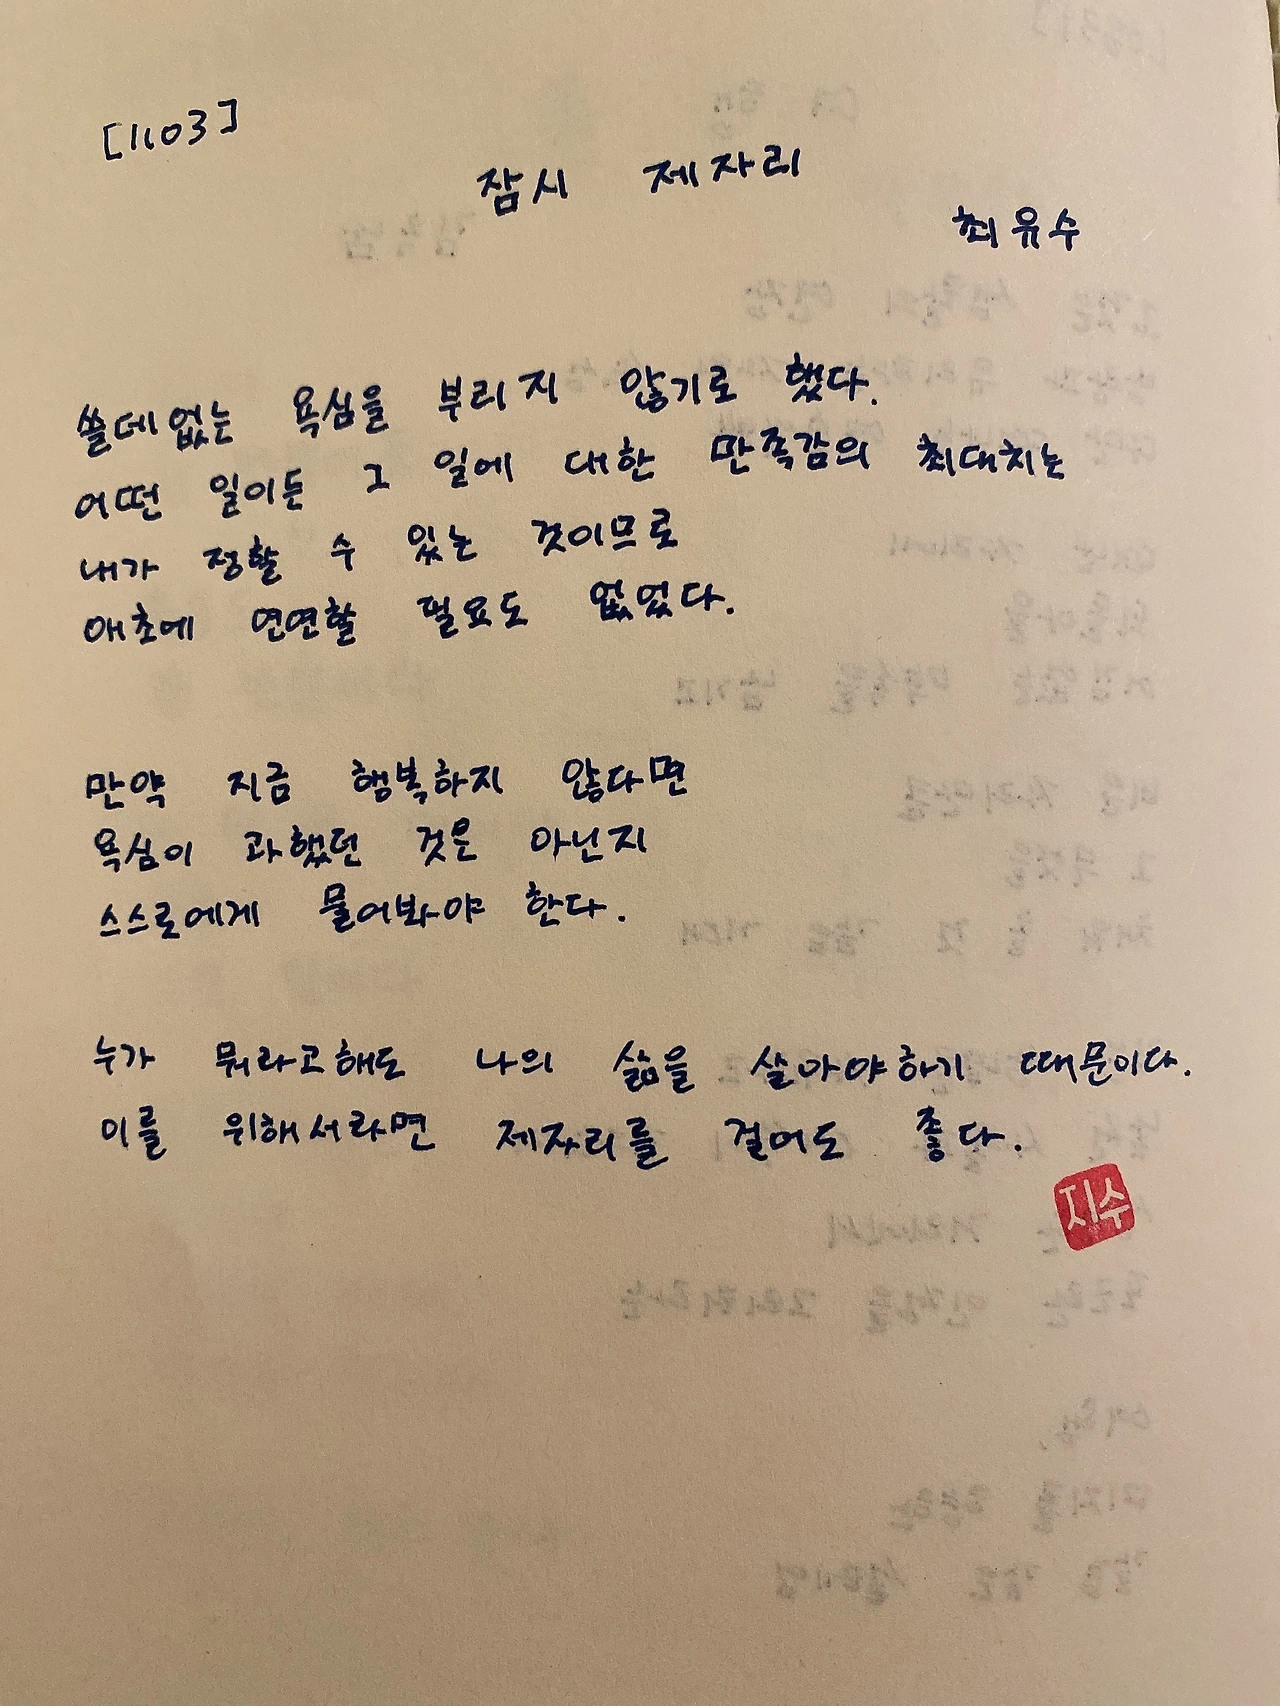 [1103]
잠시 제자리
최유수
쓸데없는 욕심을 부리지 않기로 했다.
어떤 일이든 그 일에 대한 만족감의 최대치는
내가 정할 수 있는 것이므로
애초에 연연할 필요도 없었다.
만약 지금 행복하지 않다면
욕심이 과했던 것은 아닌지
스스로에게 물어봐야 한다.
누가 뭐라고해도 나의 삶을 살아야하기 때문이다.
이를 위해서라면 제자리를 걸어도 좋다.
지수